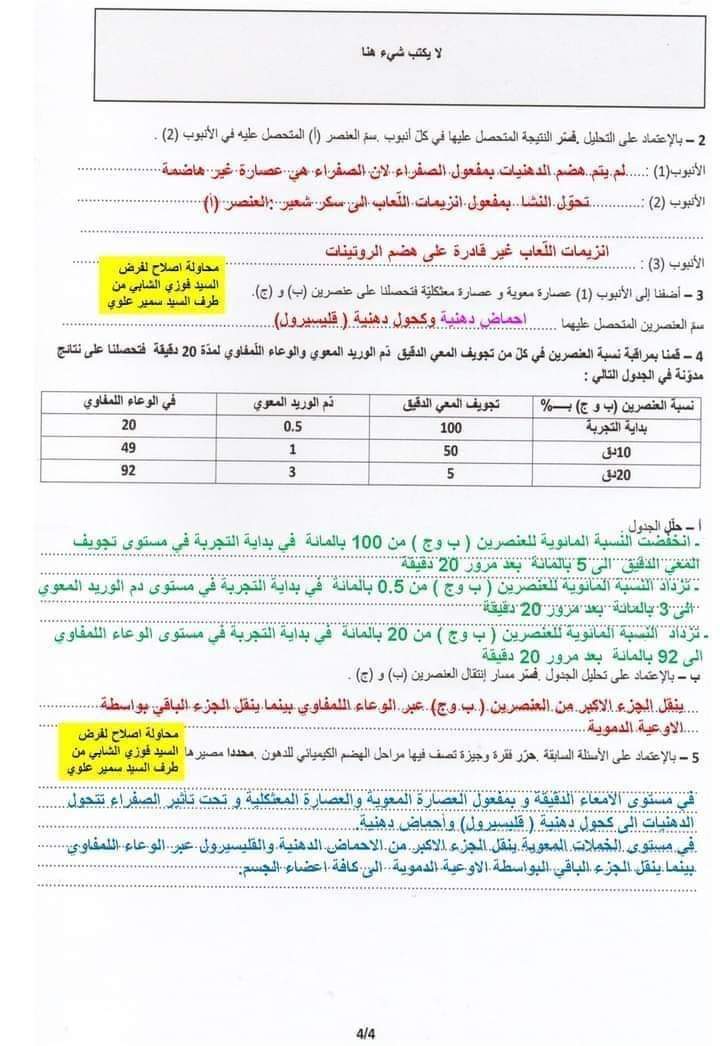 لا يكتب شيء هنا
2 – بالإعتماد على التحليل .فسّر النتيجة المتحصل عليها في كلّ أنبوب .سمّ العنصر (أ) المتحصل عليه في الأنبوب (2) .
الأنبوب(1) : لم يتم هضم الدهنيات بمفعول الصفراء لان الصفراء هي عصارة غير هاضمة
الأنبوب (2) : تحوّل النشا بمفعول انزيمات اللّعاب الى سكر شعير :العنصر (أ)
انزيمات اللّعاب غير قادرة على هضم الروتينات
الأنبوب (3) :
محاولة اصلاح لفرض
السيد فوزي الشابي من
طرف السيد سمير علوي
3 – أضفنا إلى الأنبوب (1) عصارة معوية و عصارة معثكليّة فتحصلنا على عنصرين (ب) و (ج).
سمّ العنصرين المتحصل عليهما احماض دهنية وكحول دهنية ( قليسيرول)
4 – قمنا بمراقبة نسبة العنصرين في كلّ من تجويف المعي الدقيق دّم الوريد المعوي والوعاء اللّمفاوي لمدّة 20 دقيقة فتحصلنا على نتائج
مدوّنة في الجدول التالي :
نسبة العنصرين (ب و ج) بـــ% تجويف المعي الدقيق دّم الوريد المعوي في الوعاء اللمفاوي
بداية التجربة 100 0.5 20
10دق 50 1 49
20دق 5 3 92
أ – حلّل الجدول .
- انخفضت النسبة المائوية للعنصرين ( ب وج ) من 100 بالمائة في بداية التجربة في مستوى تجويف
المعي الدقيق الى 5 بالمائة بعد مرور 20 دقيقة
- تزداد النسبة المائوية للعنصرين ( ب وج ) من 0.5 بالمائة في بداية التجربة في مستوى دم الوريد المعوي
الى 3 بالمائة بعد مرور 20 دقيقة
- تزداد النسبة المائوية للعنصرين ( ب وج ) من 20 بالمائة في بداية التجربة في مستوى الوعاء اللمفاوي
الى 92 بالمائة بعد مرور 20 دقيقة
ب – بالإعتماد على تحليل الجدول .فسّر مسار إنتقال العنصرين (ب) و (ج) .
ينقل الجزء الاكبر من العنصرين ( ب وج) عبر الوعاء اللمفاوي بينما ينقل الجزء الباقي بواسطة
الاوعية الدموية
محاولة اصلاح لفرض
السيد فوزي الشابي من
طرف السيد سمير علوي
5 – بالإعتماد على الأسئلة السابقة .حرّر فقرة وجيزة تصف فيها مراحل الهضم الكيميائي للدهون .محددا مصيرها
في مستوى الامعاء الدقيقة و بمفعول العصارة المعوية والعصارة المعثكلية و تحت تأثير الصفراء تتحول
الدهنيات الى كحول دهنية ( قليسيرول) وأحماض دهنية.
في مستوى الخملات المعوية ينقل الجزء الاكبر من الاحماض الدهنية والقليسيرول عبر الوعاء اللمفاوي
بينما ينقل الجزء الباقي البواسطة الاوعية الدموية الى كافة اعضاء الجسم.
4/4